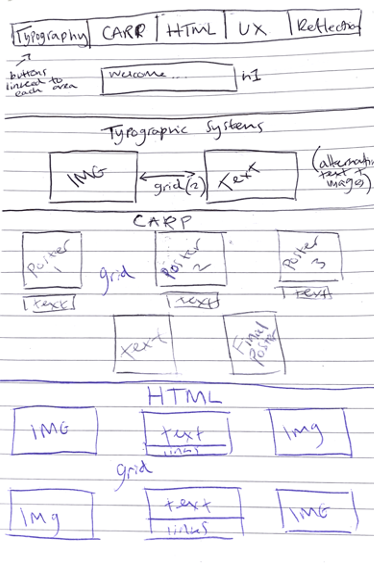 Typography CARR HTML UX Reflection
buttons
linked to
each area
Welcome... h1
Typographic Systems
IMG grid(2) text
(alternating
text +
images)
CARP
Poster 1 grid Poster 2 Poster 3
text text text
text Final Poster
HTML
IMG text Img
links
grid
Img text IMG
links